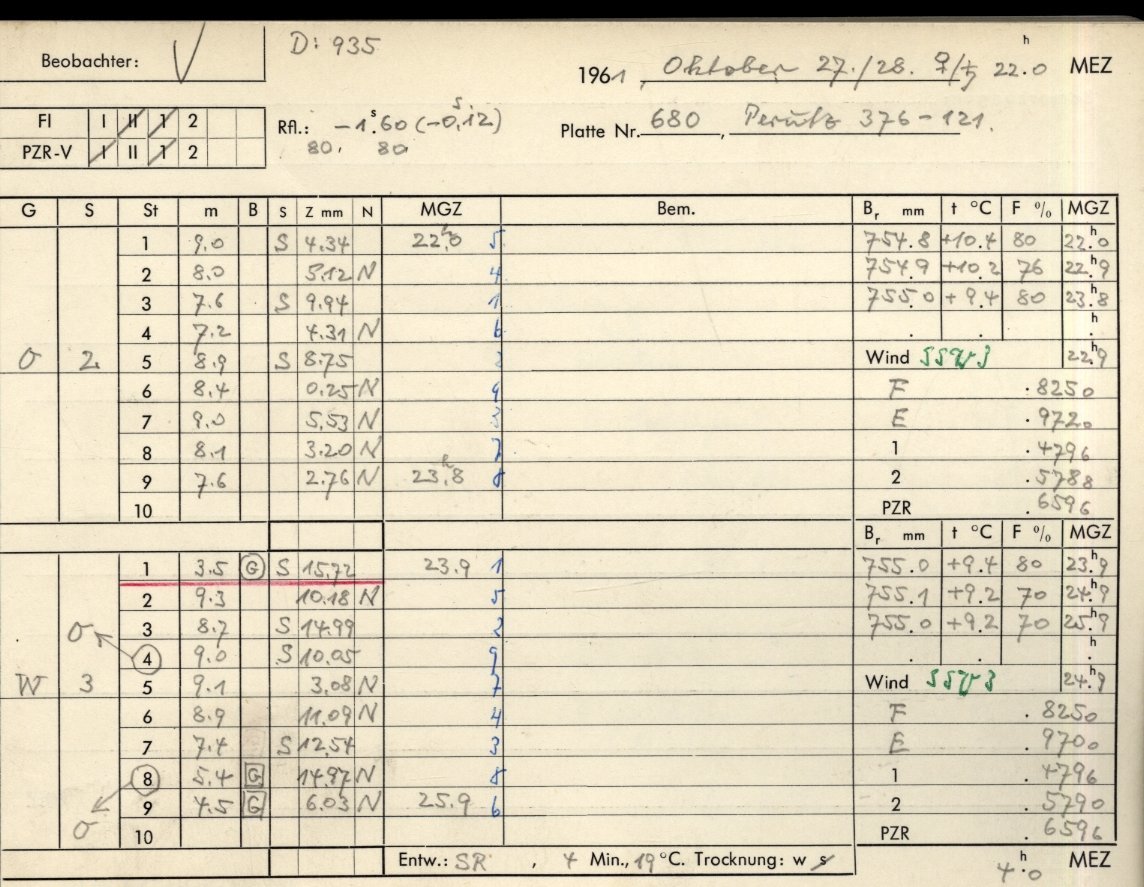 Beobachter: V D: 935 1961, Oktober 27./28. ♀/♄ 22.h0 MEZ
FI I II 1 2 Rfl.: -1.s60 (-0.s12) Platte Nr. 680, Perutz 376-121.
PZR-V I II 1 2 80. 80
G S St m B S Z mm N MGZ Bem. Br mm t °C F % MGZ
1 9.0 S 4.34 22.h0 5 754.8 +10.4 80 22.h0
2 8.0 5.12 N 4 754.9 +10.2 76 22.h9
3 7.6 S 9.94 1 755.0 +9.4 80 23.h8
4 7.2 4.31 N 6 . . h.
O 2 5 8.9 S 8.75 2 Wind SSW 3 22.h9
6 8.4 0.25 N 9 F .8250
7 9.0 5.53 N 3 E .9720
8 8.1 3.20 N 7 1 .4796
9 7.6 2.76 N 23.h8 8 2 .5788
10 PZR .6596
Br mm t °C F % MGZ
1 3.5 G S 15.72 23.9 1 755.0 +9.4 80 23.h9
2 9.3 10.18 N 5 755.1 +9.2 70 24.h9
O 3 8.7 S 14.99 2 755.0 +9.2 70 25.h9
4 9.0 S 10.05 9 . . h.
W 3 5 9.1 3.08 N 7 Wind SSW 3 24.h9
6 8.9 11.09 N 4 F .8250
7 7.4 S 12.54 3 E .9700
8 5.4 G 14.97 N 8 1 .4796
9 4.5 G 6.03 N 25.9 6 2 .5790
O 10 PZR .6596
Entw.: SR , 4 Min., 19 °C. Trocknung: w s 4.h0 MEZ